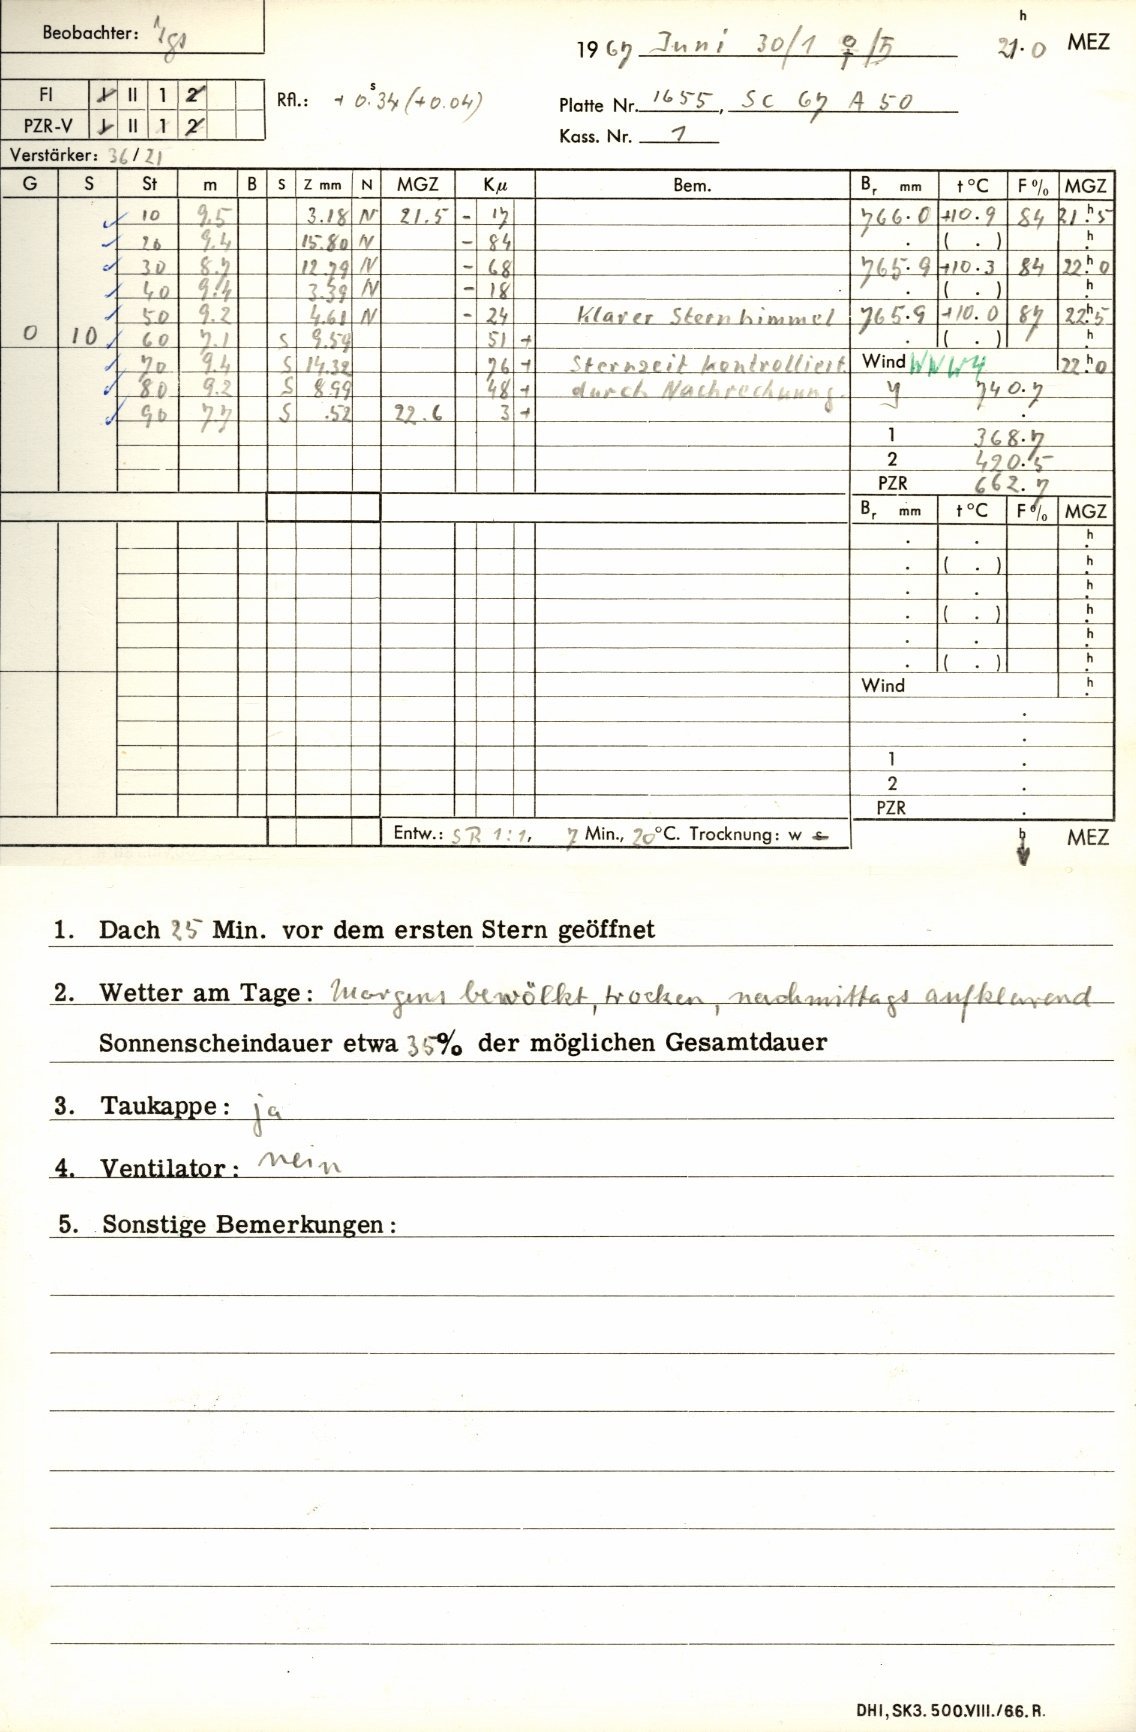 Beobachter: Igs
1967 Juni 30/1 ♀/5 21.0 h MEZ
FI I II 1 2
PZR-V I II 1 2
Rfl.: + 0.ˢ34 (+0.04)
Platte Nr. 1655, SC 67 A 50
Kass. Nr. 1
Verstärker: 36/21
G S St m B S Z mm N MGZ Kμ Bem. Br mm t °C F % MGZ
10 9.5 3.18 N 21.5 - 17 766.0 +10.9 84 21.h5
20 9.4 15.80 N - 84 . ( . ) h.
30 8.7 12.79 N - 68 765.9 +10.3 84 22.h0
40 9.4 3.39 N - 18 . ( . ) h.
50 9.2 4.61 N - 24 Klarer Sternhimmel 765.9 +10.0 87 22.h5
0 10 60 7.1 S 9.59 51 + . ( . ) h.
70 9.4 S 14.32 76 + Sternzeit kontrolliert Wind WNW4 22.h0
80 9.2 S 8.99 48 + durch Nachrechnung. y 740.7
90 7.7 S .52 22.6 3 + .
1 368.7
2 420.5
PZR 662.7
Br mm t °C F % MGZ
. . h.
. ( . ) h.
. . h.
. ( . ) h.
. . h.
. ( . ) h.
Wind h.
.
.
1 .
2 .
PZR .
Entw.: SR 1:1, 7 Min., 20°C. Trocknung: w s
h MEZ
1. Dach 25 Min. vor dem ersten Stern geöffnet
2. Wetter am Tage: Morgens bewölkt, trocken, nachmittags aufklarend
Sonnenscheindauer etwa 35% der möglichen Gesamtdauer
3. Taukappe: ja
4. Ventilator: nein
5. Sonstige Bemerkungen:
DHI, SK3. 500.VIII./66. R.